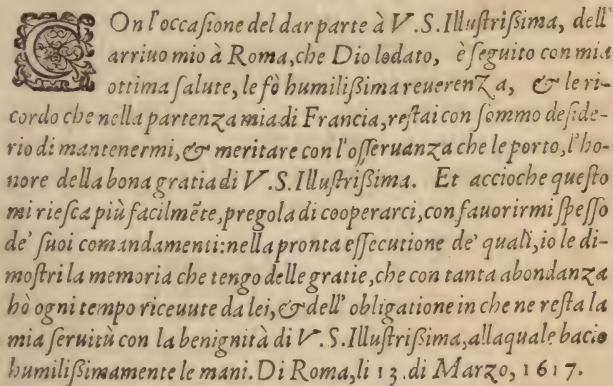 COn l'occasione del dar parte à V.S.Illustrißima, dell'
arriuo mio à Roma,che Dio lodato, è seguito con mia
ottima salute, le fò humilißima reuerenza, & le ri-
cordo che nella partenza mia di Francia, restai con sommo deside-
rio di mantenermi,& meritare con l'osseruanza che le porto,l'ho-
nore della bona gratia di V.S.Illustrißima. Et accioche questo
mi riesca più facilmẽte,pregola di cooperarci,con fauorirmi spesso
de' suoi comandamenti:nella pronta essecutione de' quali,io le di-
mostri la memoria che tengo delle gratie,che con tanta abondanza
hò ogni tempo riceuute da lei,& dell' obligatione in che ne resta la
mia seruitù con la benignità di V.S.Illustrißima,allaquale bacio
humilißimamente le mani. Di Roma,li 13.di Marzo, 1617.